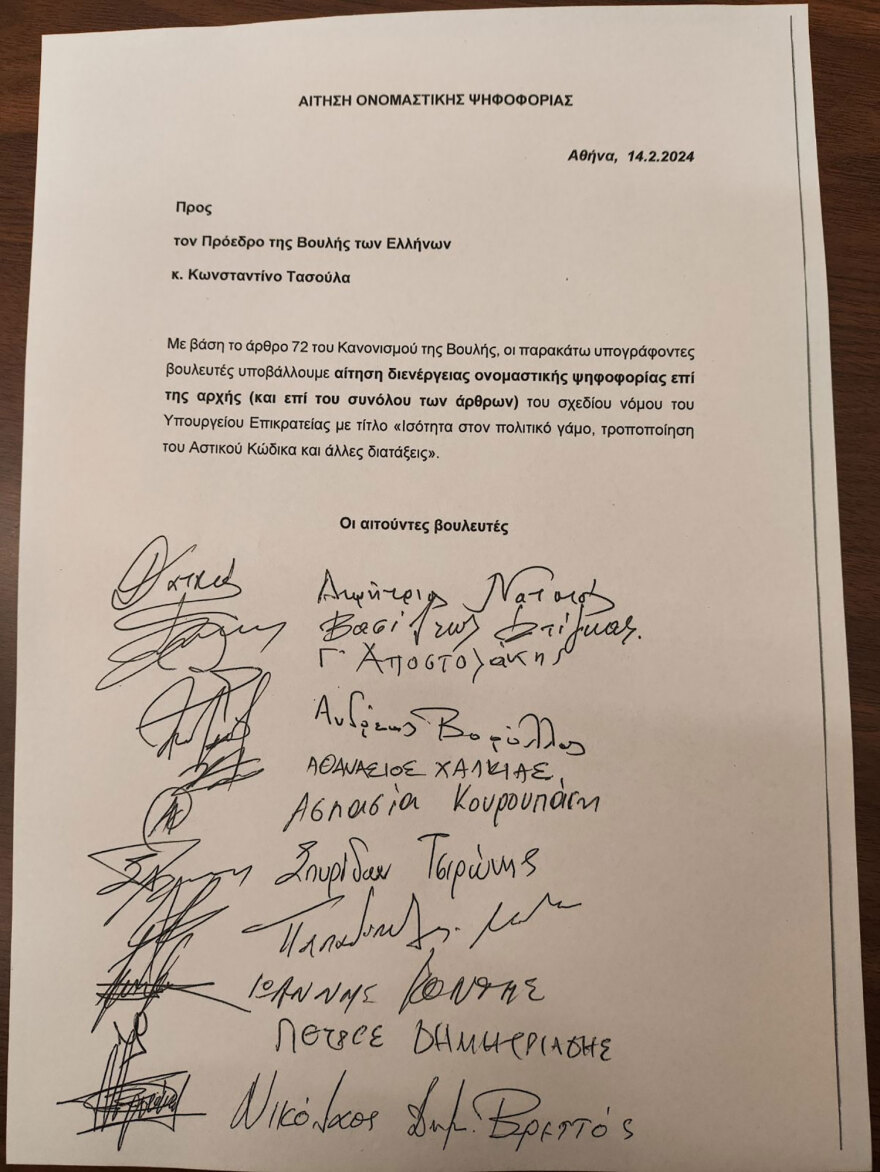 ΑΙΤΗΣΗ ΟΝΟΜΑΣΤΙΚΗΣ ΨΗΦΟΦΟΡΙΑΣ
Αθήνα, 14.2.2024
Προς
τον Πρόεδρο της Βουλής των Ελλήνων
κ. Κωνσταντίνο Τασούλα
Με βάση το άρθρο 72 του Κανονισμού της Βουλής, οι παρακάτω υπογράφοντες
βουλευτές υποβάλλουμε αίτηση διενέργειας ονομαστικής ψηφοφορίας επί
της αρχής (και επί του συνόλου των άρθρων) του σχεδίου νόμου του
Υπουργείου Επικρατείας με τίτλο «Ισότητα στον πολιτικό γάμο, τροποποίηση
του Αστικού Κώδικα και άλλες διατάξεις».
Οι αιτούντες βουλευτές
Νατσιός
Βασίλειος Στίγκας.
Γ. Αποστολάκης
Ανδρέας Βορύλλας
ΑΘΑΝΑΣΙΟΣ ΧΑΛΚΙΑΣ
Ασπασία Κουρουπάκη
Σπυρίδων Τσιρώνης
ΙΩΑΝΝΗΣ ΚΟΝΤΗΣ
ΠΕΤΡΟΣ ΔΗΜΗΤΡΙΑΔΗΣ
Νικόλαος Δημ. Βρεττός